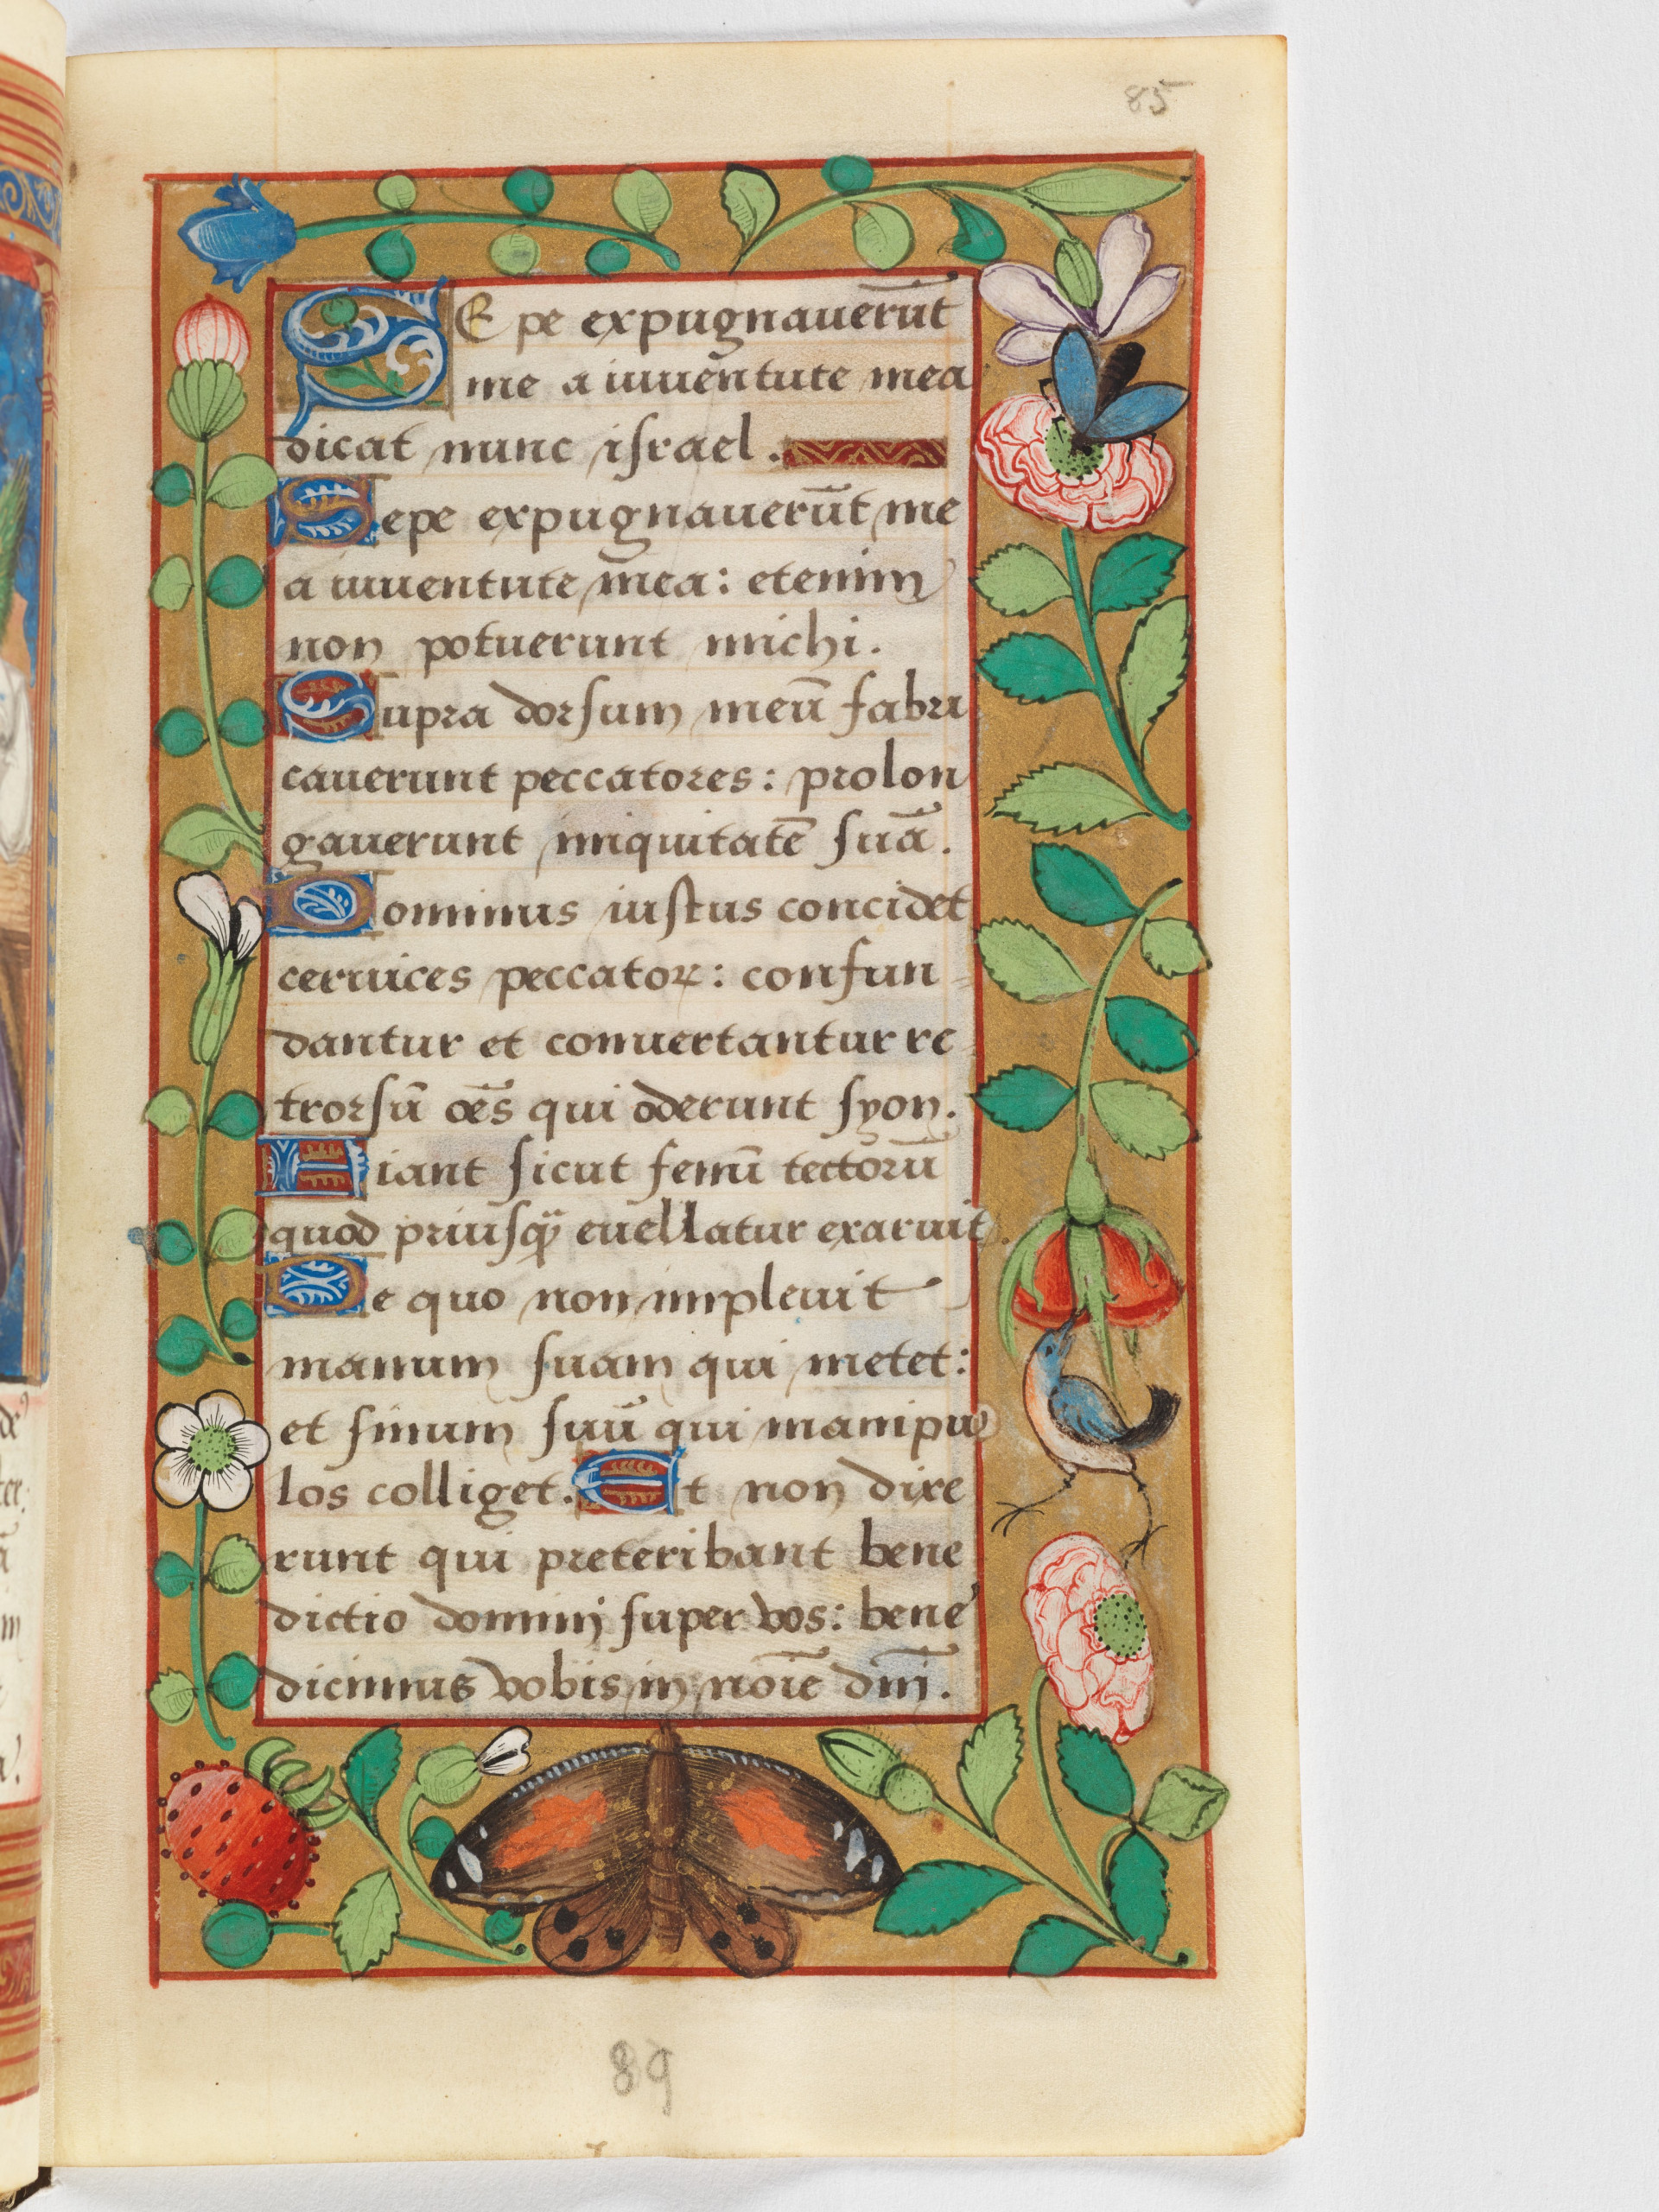 85
SEpe expugnauerūt
me a iuuentute mea
dicat nunc iſrael .
Sepe expugnauerūt me
a iuuentute mea: etenim
non potuerunt michi.
Supra dorſum meū fabri
cauerunt peccatores: prolon
gauerunt iniquitatē ſuā.
Dominus iuſtus concidet
ceruices peccatoꝝ: confun-
dantur et conuertantur re-
trorſū oēs qui oderunt ſyon.
Fiant ſicut fenū tectorū
quod priuſꝗ̈ euellatur exaruit.
De quo non impleuit
manum ſuam qui metet:
et ſinum ſuū qui manipu
los colliget. Et non dixe
runt qui preteribant bene
dictio dominj ſuper vos: bene
dicimus vobis in noīe dnī.
89